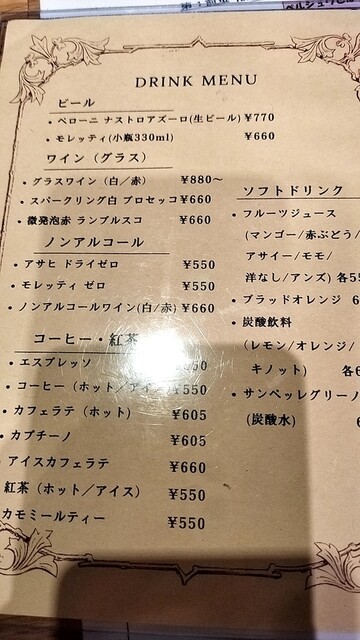 DRINK MENU
ビール
・ペローニ ナストロアズーロ(生ビール) ¥770
・モレッティ(小瓶330ml) ¥660
ワイン（グラス）
・グラスワイン（白／赤） ¥880～
・スパークリング白 プロセッコ ¥660
・微発泡赤 ランブルスコ ¥660
ノンアルコール
・アサヒ ドライゼロ ¥550
・モレッティ ゼロ ¥550
・ノンアルコールワイン(白/赤) ¥660
コーヒー・紅茶
・エスプレッソ
・コーヒー（ホット／アイ ¥550
・カフェラテ（ホット） ¥605
・カプチーノ ¥605
アイスカフェラテ ¥660
紅茶（ホット／アイス） ¥550
カモミールティー ¥550
ソフトドリンク
・フルーツジュース
(マンゴー/赤ぶどう/
アサイー/モモ/
洋なし/アンズ) 各55
・ブラッドオレンジ 6
・炭酸飲料
(レモン/オレンジ/
キノット) 各6
・サンペッレグリーノ
(炭酸水)